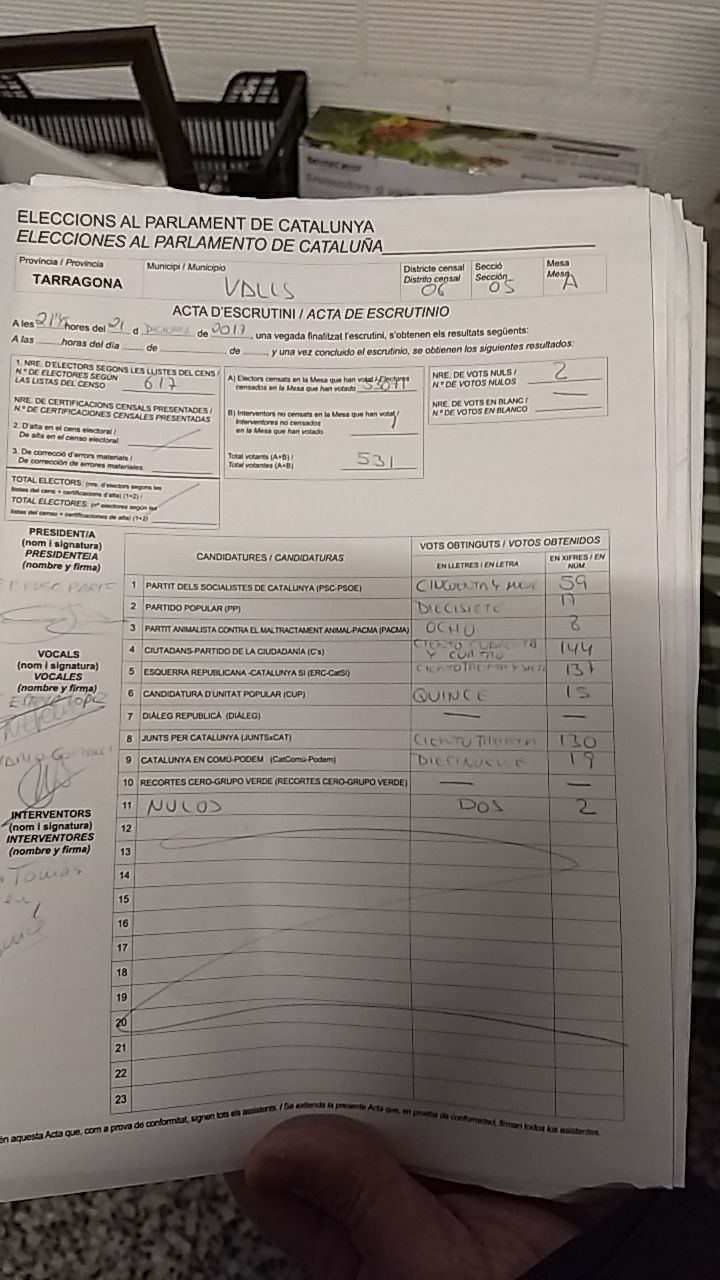 ELECCIONS AL PARLAMENT DE CATALUNYA
ELECCIONES AL PARLAMENTO DE CATALUÑA
Província / Provincia
TARRAGONA
Municipi / Municipio
VALLS
Districte censal
Distrito censal
06
Secció
Sección
05
Mesa
Mesa
A
ACTA D'ESCRUTINI / ACTA DE ESCRUTINIO
A les hores del 21 d DICIEMBRE de 2017, una vegada finalitzat l'escrutini, s'obtenen els resultats següents:
A las ........ horas del día ........ de ........ de ........, y una vez concluido el escrutinio, se obtienen los siguientes resultados:
1. NRE. D'ELECTORS SEGONS LES LLISTES DEL CENS /
N.º DE ELECTORES SEGÚN
LAS LISTAS DEL CENSO
617
NRE. DE CERTIFICACIONS CENSALS PRESENTADES /
N.º DE CERTIFICACIONES CENSALES PRESENTADAS
2. D'alta en el cens electoral /
De alta en el censo electoral:
3. De correcció d'errors materials /
De corrección de errores materiales
TOTAL ELECTORS: (nre. d'electors segons les
llistes del cens + certificacions d'alta) (1+2) /
TOTAL ELECTORES: (nº electores según las
listas del censo + certificaciones de alta) (1+2)
A) Electors censats en la Mesa que han votat / Electores
censados en la Mesa que han votado
B) Interventors no censats en la Mesa que han votat /
Interventores no censados
en la Mesa que han votado
Total votants (A+B) /
Total votantes (A+B)
531
NRE. DE VOTS NULS /
N.º DE VOTOS NULOS
2
NRE. DE VOTS EN BLANC /
N.º DE VOTOS EN BLANCO
—
PRESIDENT/A
(nom i signatura)
PRESIDENTE/A
(nombre y firma)
VOCALS
(nom i signatura)
VOCALES
(nombre y firma)
INTERVENTORS
(nom i signatura)
INTERVENTORES
(nombre y firma)
Tomas
CANDIDATURES / CANDIDATURAS
VOTS OBTINGUTS / VOTOS OBTENIDOS
EN LLETRES / EN LETRA
EN XIFRES / EN NÚM.
1 PARTIT DELS SOCIALISTES DE CATALUNYA (PSC-PSOE) CINCUENTA Y NUEVE 59
2 PARTIDO POPULAR (PP) DIECISIETE 17
3 PARTIT ANIMALISTA CONTRA EL MALTRACTAMENT ANIMAL-PACMA (PACMA) OCHO 8
4 CIUTADANS-PARTIDO DE LA CIUDADANÍA (C's) CIENTO CUARENTA Y CUATRO 144
5 ESQUERRA REPUBLICANA -CATALUNYA SÍ (ERC-CatSí) CIENTO TREINTA Y SIETE 137
6 CANDIDATURA D'UNITAT POPULAR (CUP) QUINCE 15
7 DIÀLEG REPUBLICÀ (DIÀLEG) — —
8 JUNTS PER CATALUNYA (JUNTSxCAT) CIENTO TREINTA 130
9 CATALUNYA EN COMÚ-PODEM (CatComú-Podem) DIECINUEVE 19
10 RECORTES CERO-GRUPO VERDE (RECORTES CERO-GRUPO VERDE) — —
11 NULOS DOS 2
12
13
14
15
16
17
18
19
20
21
22
23
én aquesta Acta que, com a prova de conformitat, signen tots els assistents. / Se extiende la presente Acta que, en prueba de conformidad, firman todos los asistentes.